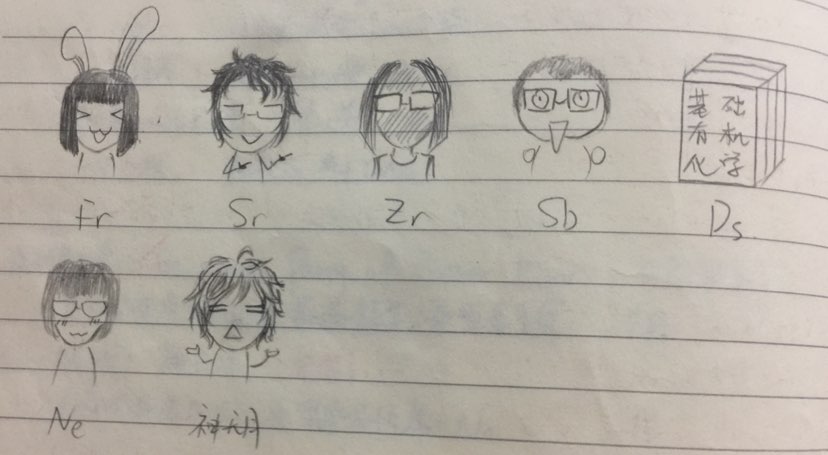 基础
有机
化学
Fr Sr Zr Sb Ds
Ne